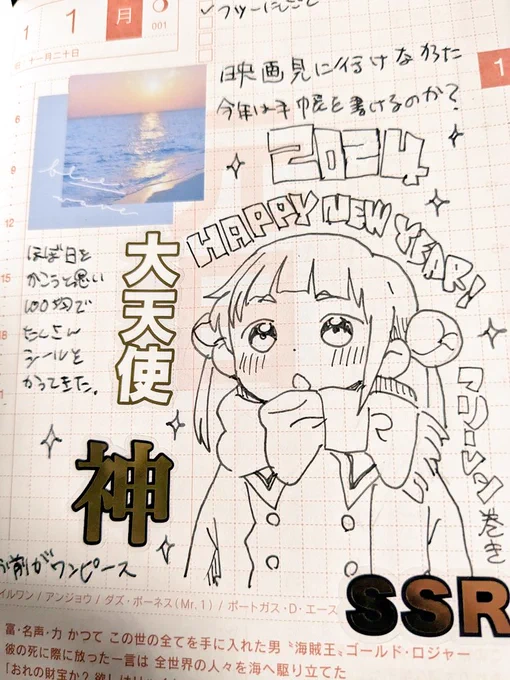 1 1 月
001
十一月二十日
映画見に行けなかった
今年は手帳を書けるのか?
1
6
9
12
15
18
blue
wave
2024
HAPPY NEW YEAR!
ほぼ日を
かこうと思い
100均で
たくさん
シールを
かってきた。
大天使
神
フリーレン巻き
お前がワンピース
SSR
イルワン / アンジョウ / ダズ・ボーネス(Mr.1) / ポートガス・D・エース
冨・名声・力 かつて この世の全てを手に入れた男 〝海賊王〟ゴールド・ロジャー
彼の死に際に放った一言は 全世界の人々を海へ駆り立てた